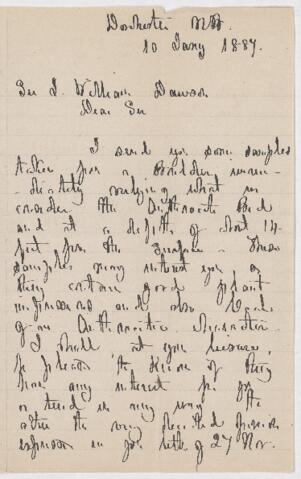 Dorchester N.B.
10 Jany 1887.
Sir J. William Dawson
Dear Sir
I send you some samples
taken from a Boulder imme-
-diately underlying what we
consider the Anthracite Bed
and at a depth of about 14
feet from the surface - These
samples may interest you as
they contain good plant
impressions and also
of an Anthracitic
I shall at your leisure,
be pleased to know if they
have any interest for you
or tend in any way to
alter the very decided opinion
expressed in your letter of 27 Nov.